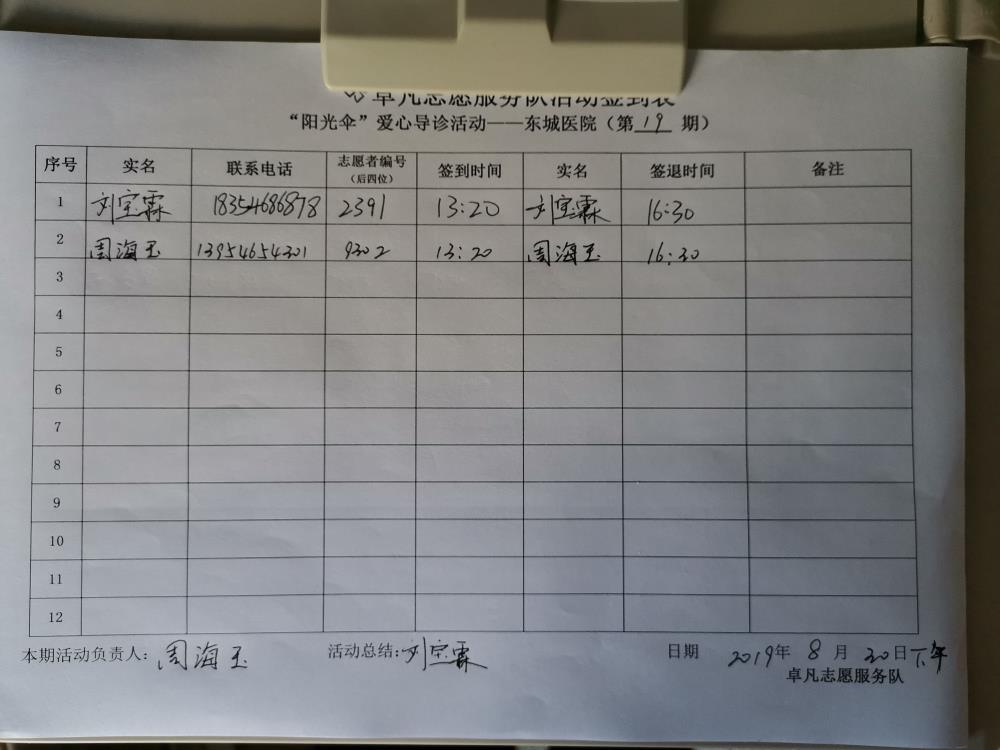 卓凡志愿服务队活动签到表
“阳光伞”爱心导诊活动——东城医院（第 19 期）
序号 实名 联系电话 志愿者编号（后四位） 签到时间 实名 签退时间 备注
1 刘宝霖 18354686878 2391 13:20 刘宝霖 16:30
2 周海玉 13954654301 9302 13:20 周海玉 16:30
3
4
5
6
7
8
9
10
11
12
本期活动负责人：周海玉 活动总结：刘宝霖 日期 2019年 8 月 20日下午
卓凡志愿服务队